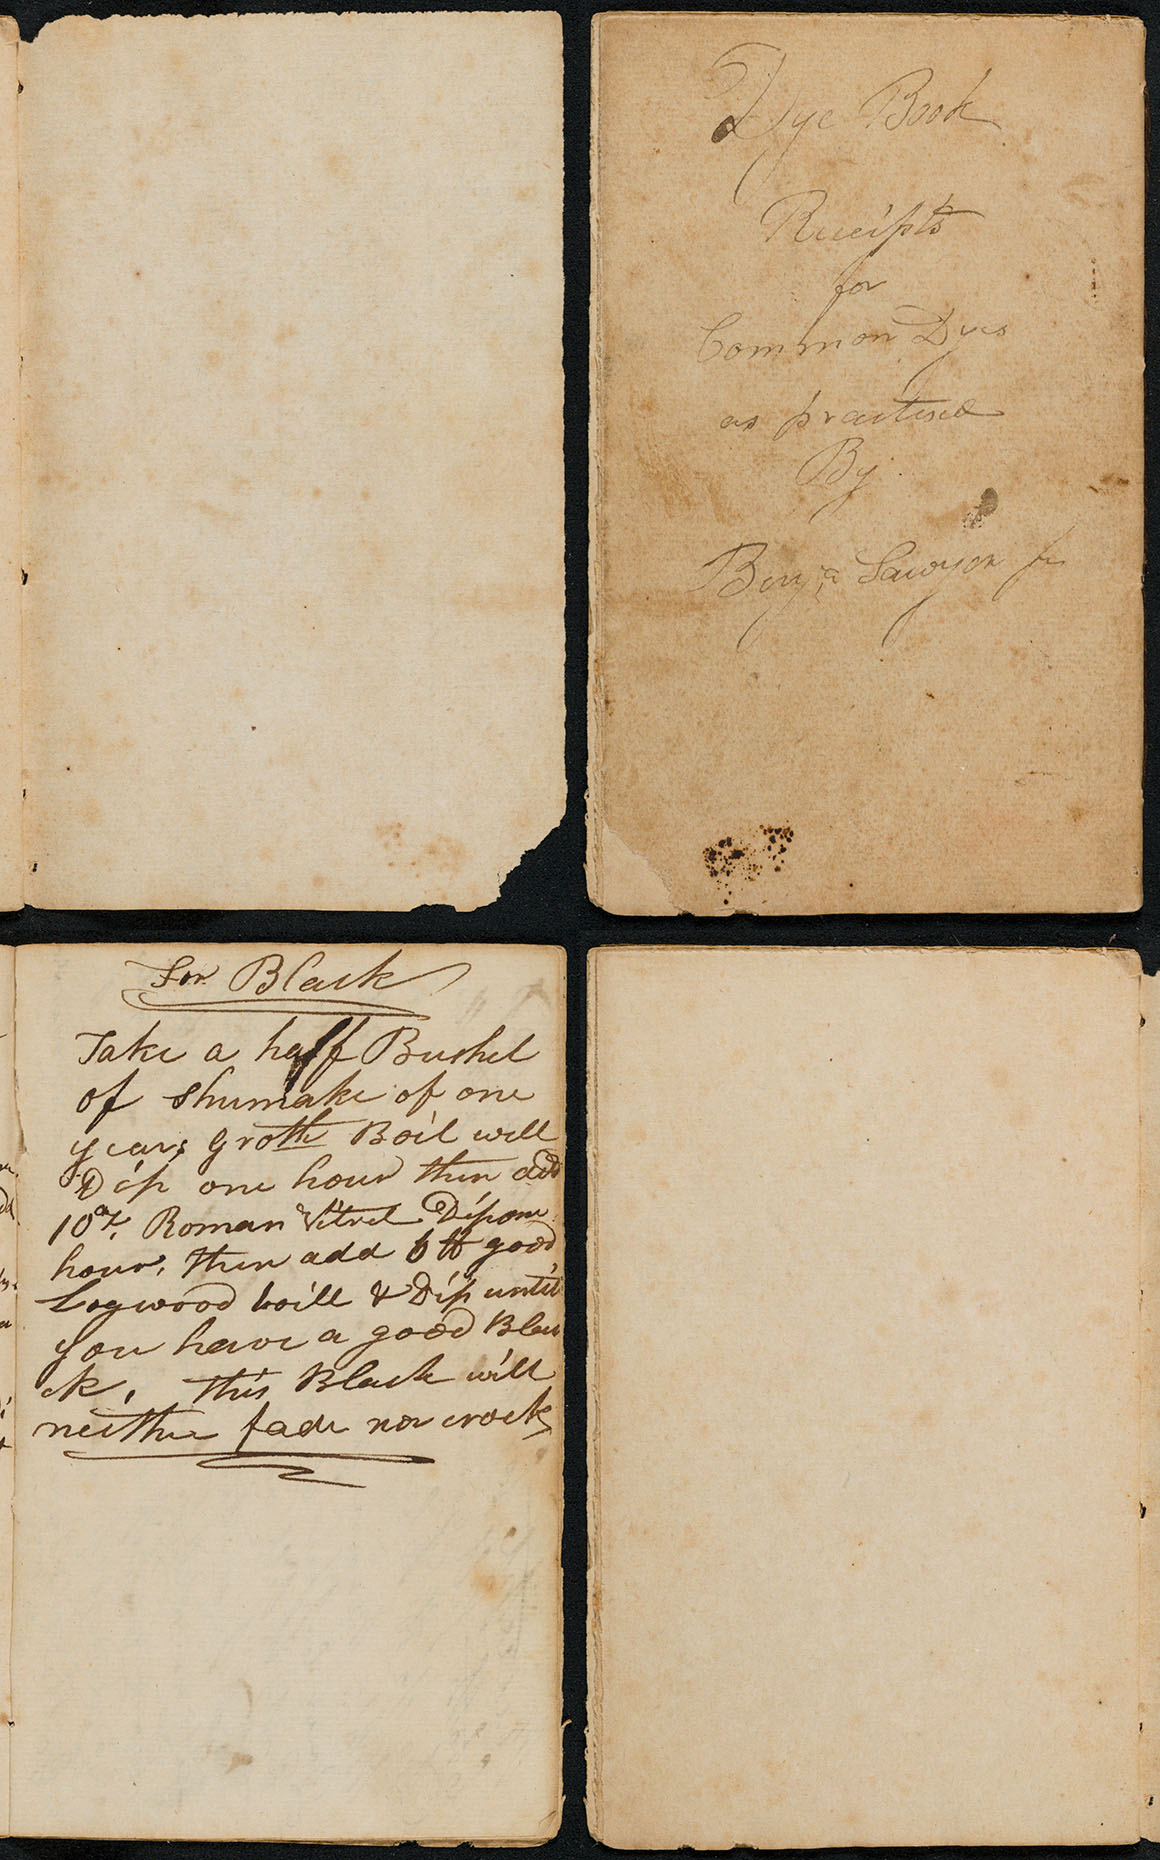 Dye Book
Receipts
for
Common Dyes
as practised
By
Benj.a Sawyer Jr
For Black
Take a half Bushel
of Shumake of one
years groth Boil well
Dip one hour then add
10 oz. Roman Vitrel Dip one
hour, then add 6 lb good
Logwood boill & Dip until
you have a good Blac
ck, this Black will
neither fade nor crock